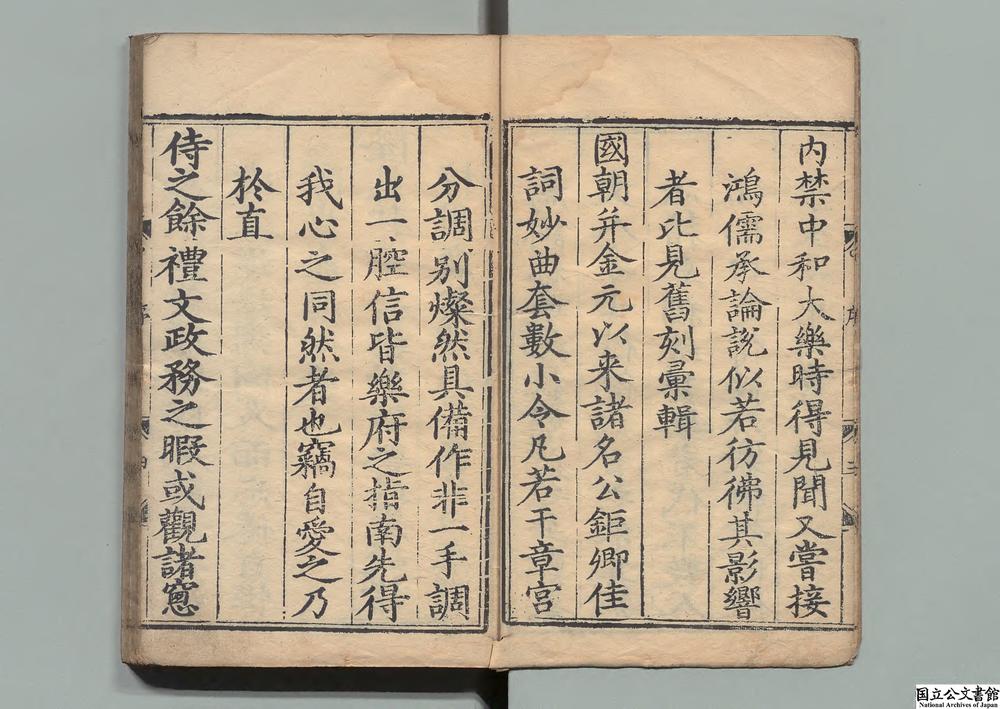 内禁中和大樂時得見聞又嘗接
鴻儒承論說似若彷彿其影響
者比見舊刻彙輯
國朝并金元以来諸名公鉅卿佳
詞妙曲套數小令凡若干章宮
分調別燦然具備作非一手調
出一腔信皆樂府之指南先得
我心之同然者也竊自愛之乃
於直
侍之餘禮文政務之暇或觀諸窻
国立公文書館
National Archives of Japan